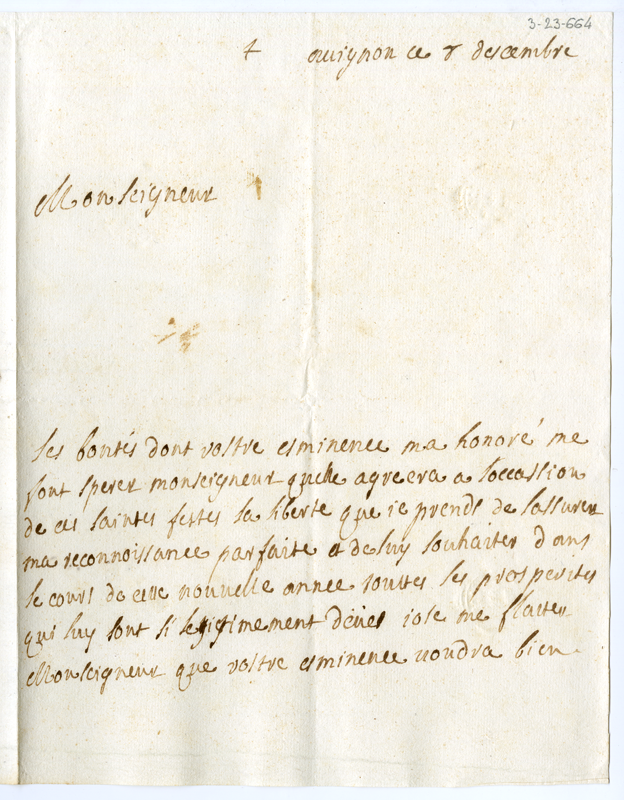 3-23-664
+ avignon ce 8 descembre
Monseigneur
les bontés dont vostre esminence ma honoré me
font sperer monseigneur quelle agreera a loccassion
de ces saintes festes la liberte que ie prends de lassurer
ma reconnoissance parfaite et de luy souhaiter dans
le cours de cette nouvelle annee touttes les prosperites
qui luy sont si legitimement deues iose me flatter
Monseigneur que vostre esminence voudra bien